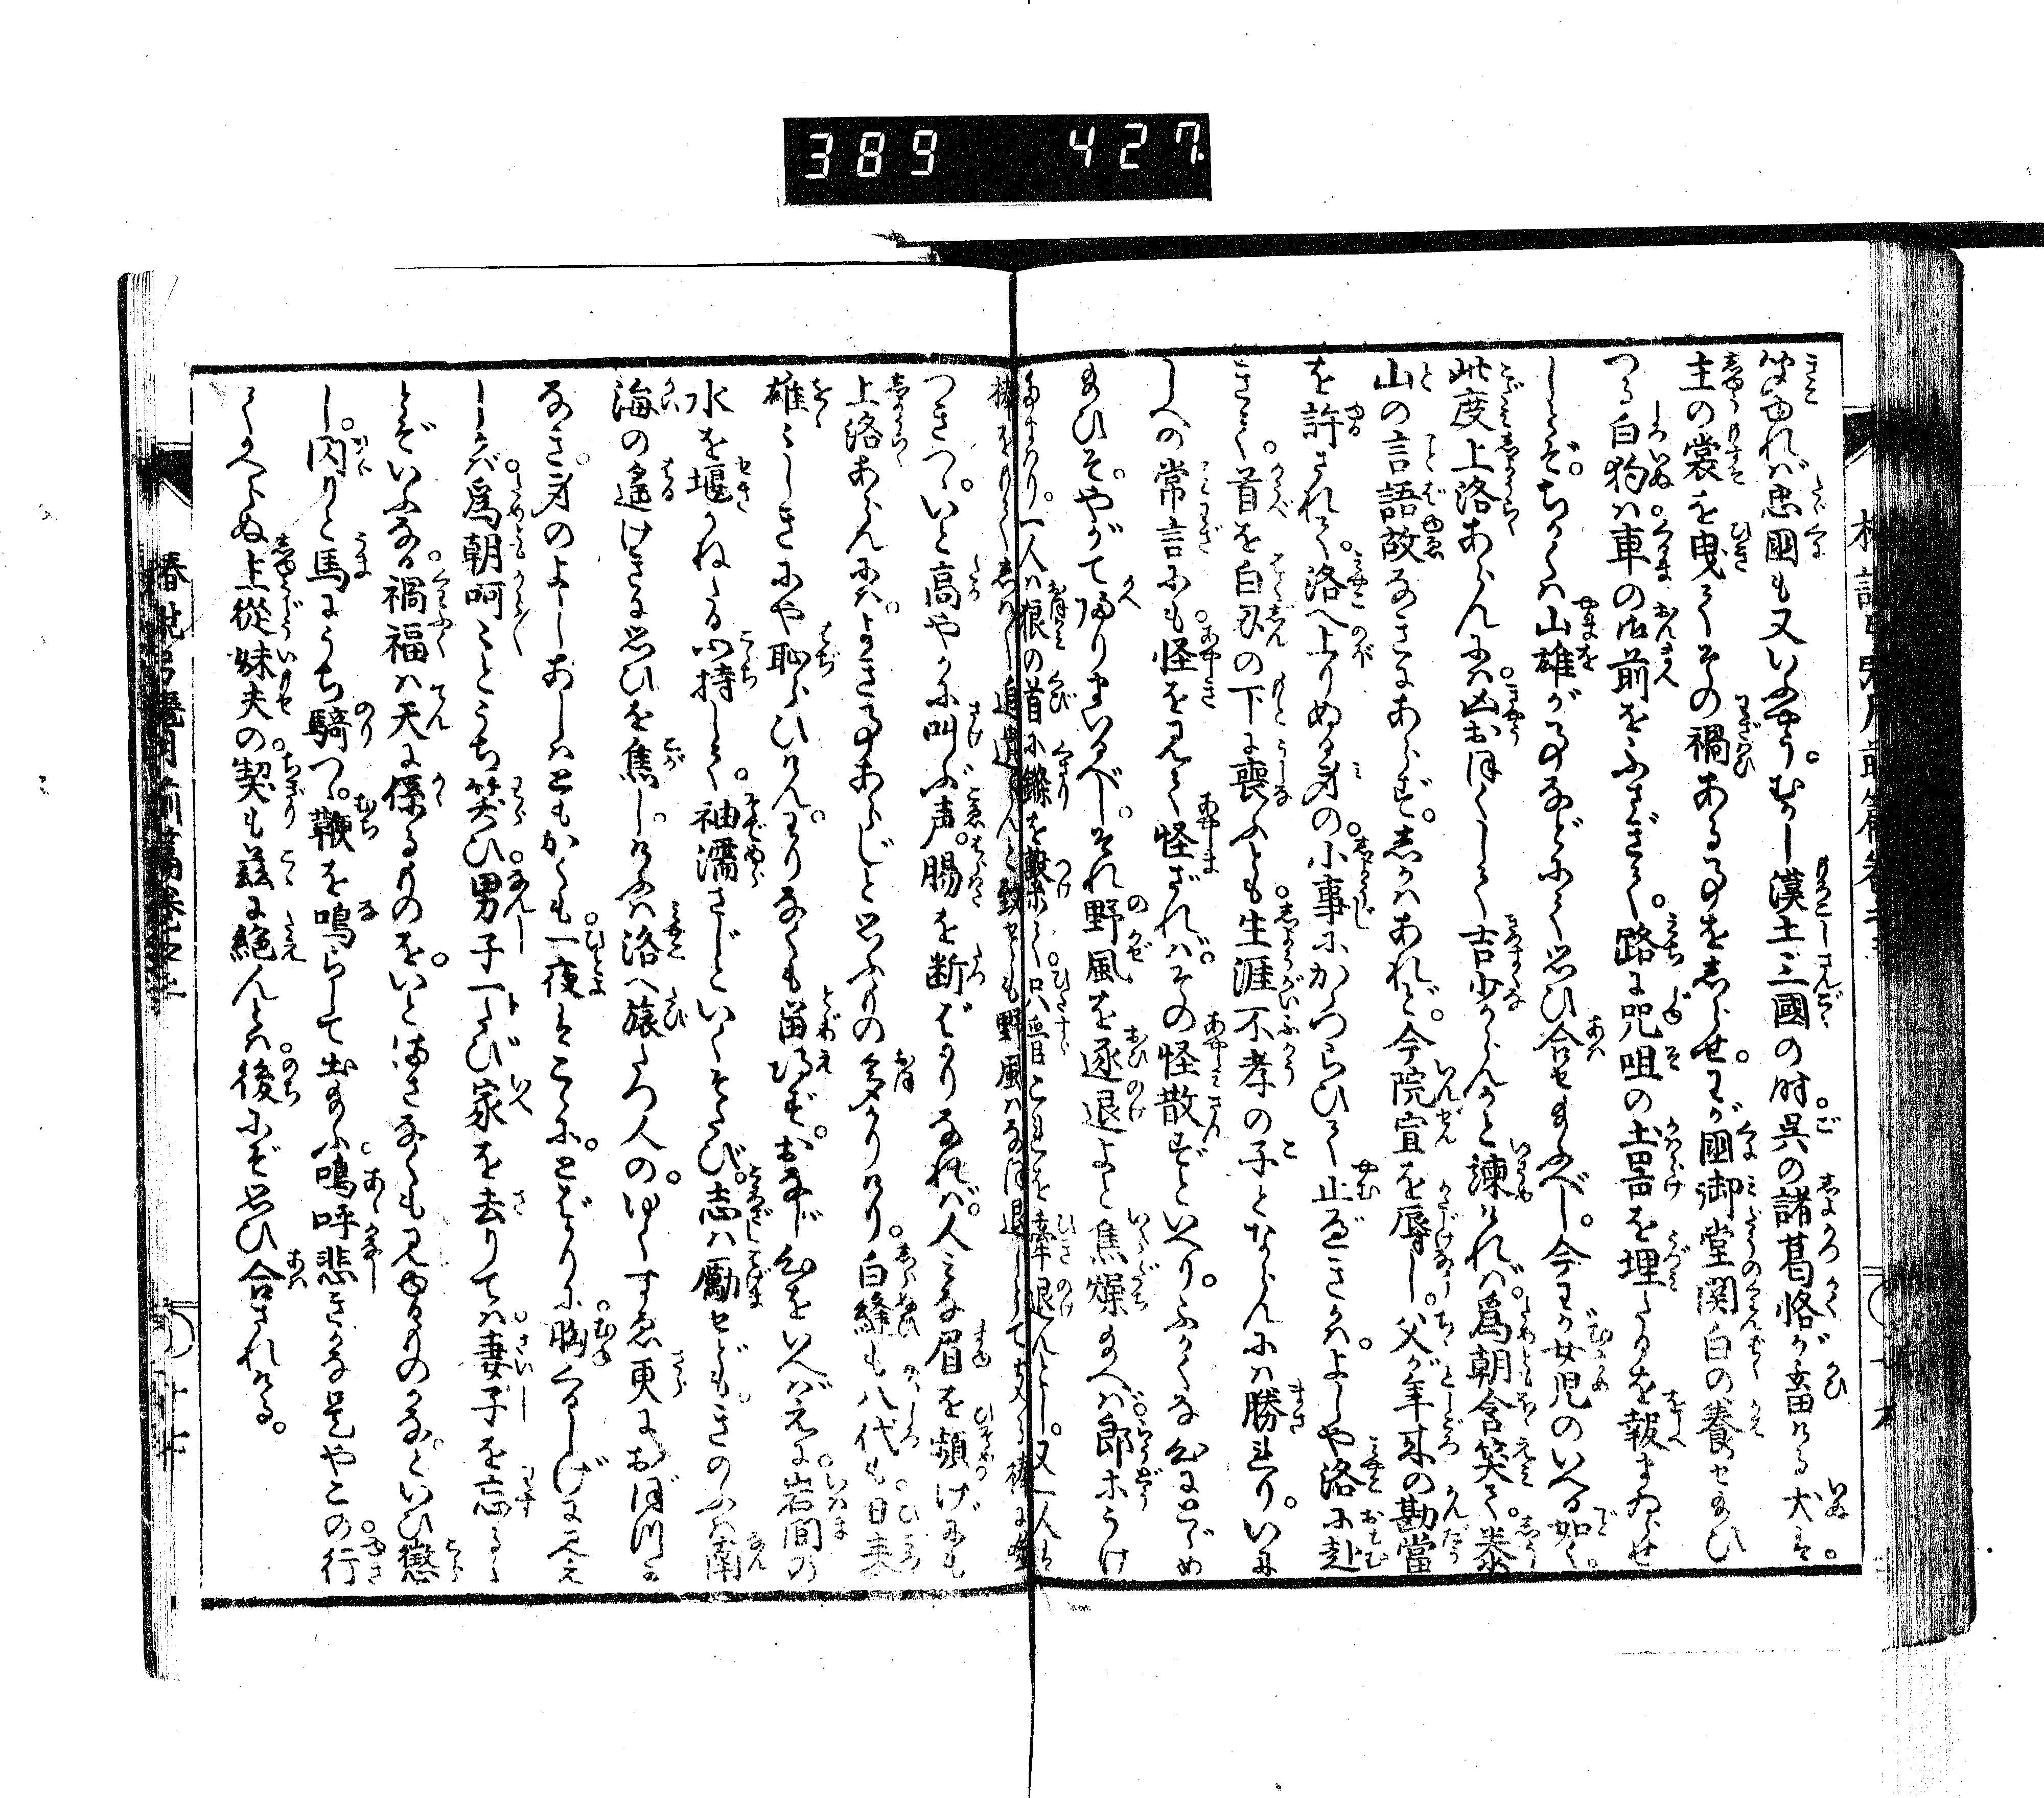 389 427
きこゆれば忠國も又いふやう。むかし漢土三國の時呉の諸葛恪が畜ける犬は。
主の裳を曳てその禍ある事をしらせ。わが國御堂関白の養せ給ひ
つる白狗は車の御前をふさぎて。路に咒咀の土器を埋たるを報まゐらせ
しとぞ。ちかくは山雄が事などにて思ひ合せ給ふべし。今わが女児のいへる如く。
此度上洛あらんには。凶おほくして吉少からんかと諫れば。爲朝含笑て。泰
山の言語故なきにあらず。しかはあれど。今院宣を辱し。父が年来の勘當
を許されて。洛へ上りぬる身の。小事にかゝづらひて止べきかは。よしや洛に赴
きて。首を白刃の下に喪ふとも。生涯不孝の子とならんには勝れり。いに
しへの常言にも。怪を見て怪ざれば。その怪散ずといへり。ふかくな心にとゞめ
給ひそ。やがて帰りまいるべし。それ野風を逐退よと焦燥給へば。郎等うけ
給はり。一人は狼の首に鏁を繋ぎて。只管これを牽退んとし。又一人は
棒をもてしばし追遣らんと欲せしも野風はなほ退ずして
つきつ。いと高やかに叫ぶ声。腸を断ばかりなれば。人みな眉を顰げにも
上洛あらんには。よき事あらじと思ふもの多かりけり。白縫も八代も。日来
雄々しきにや恥らひけん。わりなくも留得ず。おなじ心をいへばえに。岩間の
水を堰かねたる心持して。袖濡さじといくそたび。志は勵せども。きのふは南
海の遥けきに思ひを焦し。けふは洛へ旅たつ人の。ゆくすゑ更におぼつか
なき身のよしあしはともかくも。一夜はこゝに。とばかりに胸くるしげに見え
しかば。爲朝呵々とうち笑ひ。男子一たび家を去りては。妻子を忘るゝ
とぞいふなる。禍福は天に係るものを。いとまさなくも見ゆるものかな。といひ懲
し。閃りと馬にうち騎つ。鞭を鳴らして出給ふ。嗚呼悲きかな是やこの。行
てかへらぬ上従。妹夫の契も茲に絶んとは。後にぞ思ひ合されける。
椿説弓張月前篇巻之五